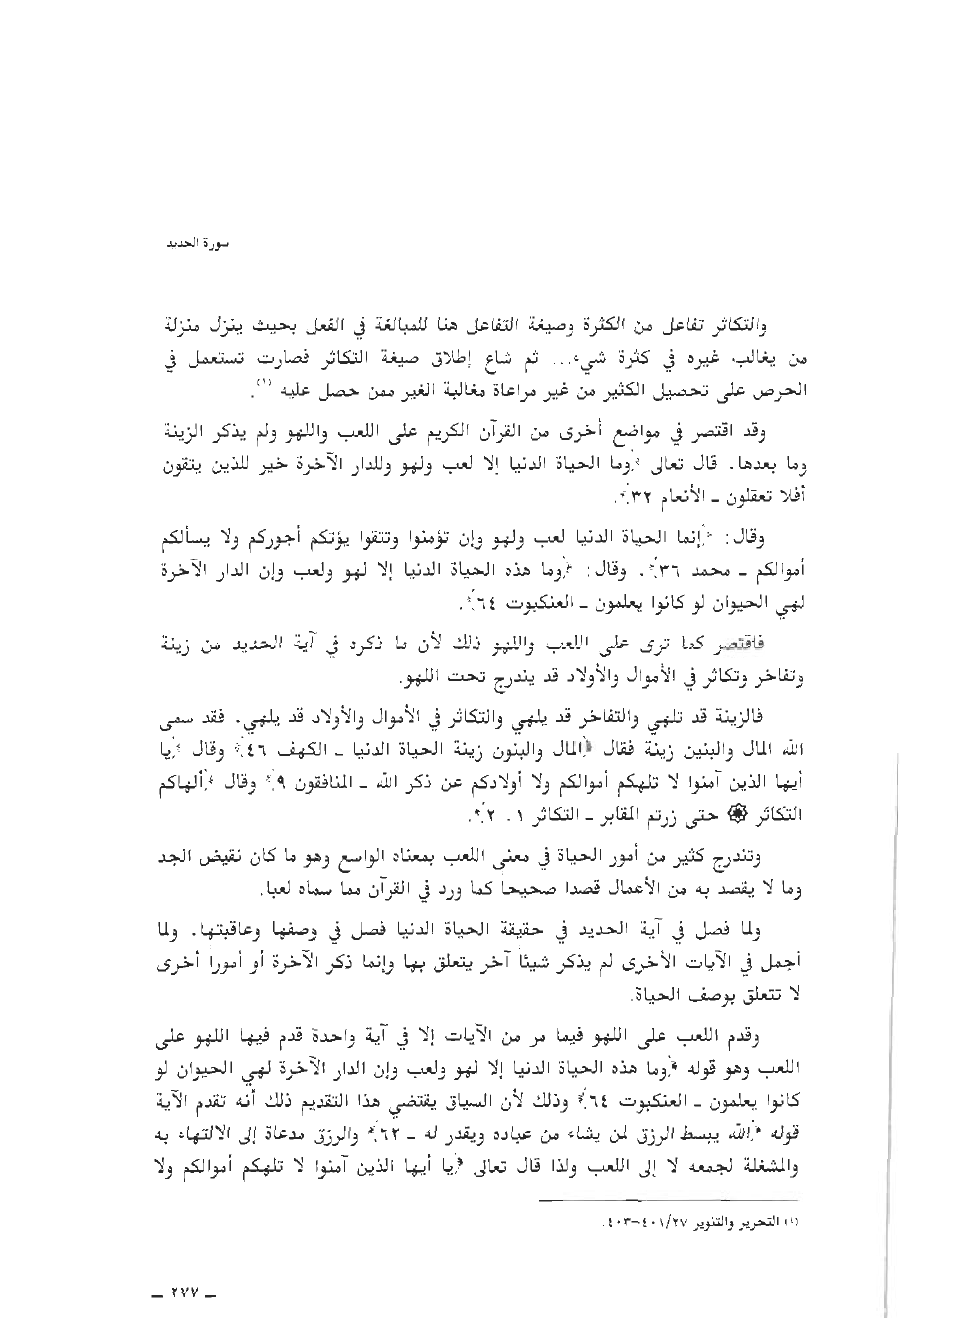 سورة الحديد
والتكاثر تفاعل من الكثرة وصيغة التفاعل هنا للمبالغة في الفعل بحيث ينزل منزلة
من يغالب غيره في كثرة شيء... ثم شاع إطلاق صيغة التكاثر فصارت تستعمل في
الحرص على تحصيل الكثير من غير مراعاة مغالبة الغير ممن حصل عليه (١).
وقد اقتصر في مواضع أخرى من القرآن الكريم على اللعب واللهو ولم يذكر الزينة
وما بعدها. قال تعالى ﴿وما الحياة الدنيا إلا لعب ولهو وللدار الآخرة خير للذين يتقون
أفلا تعقلون ـ الأنعام ٣٢﴾.
وقال: ﴿إنما الحياة الدنيا لعب ولهو وإن تؤمنوا وتتقوا يؤتكم أجوركم ولا يسألكم
أموالكم ـ محمد ٣٦﴾. وقال: ﴿وما هذه الحياة الدنيا إلا لهو ولعب وإن الدار الآخرة
لهي الحيوان لو كانوا يعلمون ـ العنكبوت ٦٤﴾.
فاقتصر كما ترى على اللعب واللهو ذلك لأن ما ذكره في آية الحديد من زينة
وتفاخر وتكاثر في الأموال والأولاد قد يندرج تحت اللهو.
فالزينة قد تلهي والتفاخر قد يلهي والتكاثر في الأموال والأولاد قد يلهي. فقد سمى
الله المال والبنين زينة فقال ﴿المال والبنون زينة الحياة الدنيا ـ الكهف ٤٦﴾ وقال ﴿يا
أيها الذين آمنوا لا تلهكم أموالكم ولا أولادكم عن ذكر الله ـ المنافقون ٩﴾ وقال ﴿ألهاكم
التكاثر ۞ حتى زرتم المقابر ـ التكاثر ١، ٢﴾.
وتندرج كثير من أمور الحياة في معنى اللعب بمعناه الواسع وهو ما كان نقيض الجد
وما لا يقصد به من الأعمال قصدا صحيحا كما ورد في القرآن مما سماه لعبا.
ولما فصل في آية الحديد في حقيقة الحياة الدنيا فصل في وصفها وعاقبتها. ولما
أجمل في الآيات الأخرى لم يذكر شيئا آخر يتعلق بها وإنما ذكر الآخرة أو أمورا أخرى
لا تتعلق بوصف الحياة.
وقدم اللعب على اللهو فيما مر من الآيات إلا في آية واحدة قدم فيها اللهو على
اللعب وهو قوله ﴿وما هذه الحياة الدنيا إلا لهو ولعب وإن الدار الآخرة لهي الحيوان لو
كانوا يعلمون ـ العنكبوت ٦٤﴾ وذلك لأن السياق يقتضي هذا التقديم ذلك أنه تقدم الآية
قوله ﴿الله يبسط الرزق لمن يشاء من عباده ويقدر له ـ ٦٢﴾ والرزق مدعاة إلى الالتهاء به
والمشغلة لجمعه لا إلى اللعب ولذا قال تعالى ﴿يا أيها الذين آمنوا لا تلهكم أموالكم ولا
(١) التحرير والتنوير ٢٧/ ٤٠١-٤٠٣.
ـ ٢٧٧ ـ